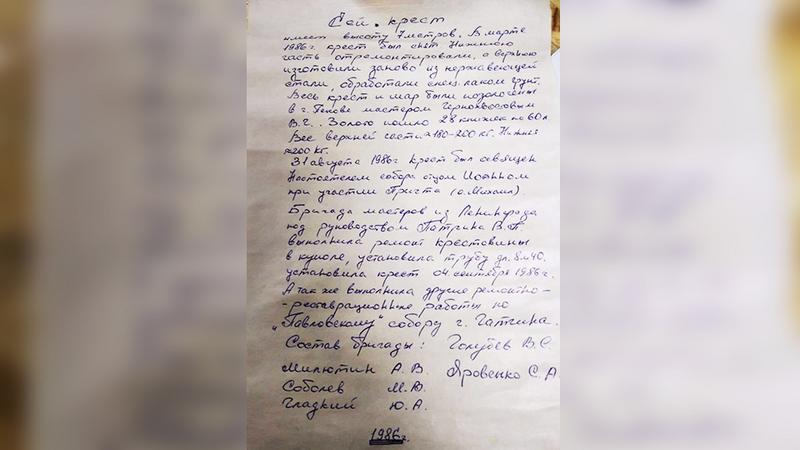 Сей. крест
имеет высоту 7 метров. В марте
1986г. крест был снят Нижнюю
часть отремонтировали, а верхнюю
изготовили заново из нержавеющей
стали, обработали спец. лаком грунт.
Весь крест и шар были позолочены
в г. Пскове мастером Чернохвостовым
В.Г.. Золота пошло 28 книжек по 60л
Вес верхней части ≈180-200 кг. Нижняя
≈200 кг.
31 августа 1986г крест был освящён
Настоятелем собора отцом Иоанном
при участии Причта (о. Михаил)
Бригада мастеров из Ленинграда
под руководством В.П.
выполнила ремонт крестовины
в куполе, установила трубу дл. 8м40.
установила крест 04 сентября 1986г.
А так же выполнила другие ремонтно-
-реставрационные работы по
„Павловскому" собору г. Гатчина.
Состав бригады: Голубев В.С.
Милютин А.В. Яровенко С.А
Соболев М.В.
Гладкий Ю.А.
1986г.